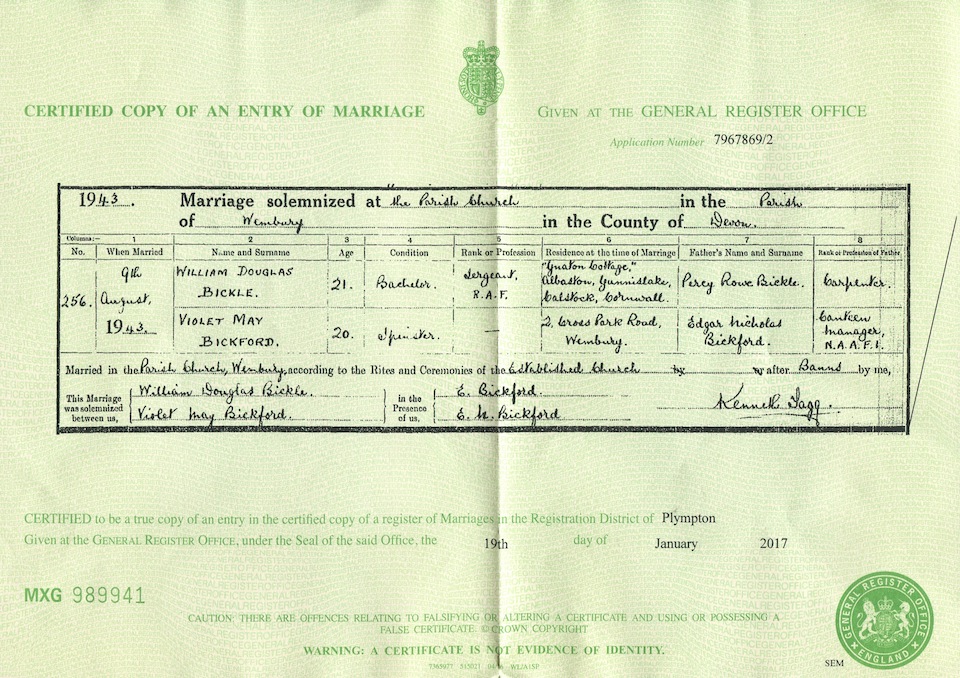 CERTIFIED COPY OF AN ENTRY OF MARRIAGE
GIVEN AT THE GENERAL REGISTER OFFICE
Application Number 7967869/2
1943. Marriage solemnized at the Parish Church in the Parish
of Wembury in the County of Devon.
Columns:— 1 2 3 4 5 6 7 8
No. When Married Name and Surname Age Condition Rank or Profession Residence at the time of Marriage Father's Name and Surname Rank or Profession of Father
256. 9th August, 1943. WILLIAM DOUGLAS BICKLE. 21. Bachelor. Sergeant, R.A.F. Cottage," Albaston, Gunnislake, Calstock, Cornwall. Percy Rowe Bickle. Carpenter.
VIOLET MAY BICKFORD. 20. Spinster. — 2, Cross Park Road, Wembury. Edgar Nicholas Bickford. Canteen Manager, N.A.A.F.I.
Married in the Parish Church, Wembury, according to the Rites and Ceremonies of the Established Church by or after Banns by me,
This Marriage was solemnized between us, William Douglas Bickle. Violet May Bickford. in the Presence of us, E. Bickford. E. N. Bickford Kenneth Tagg.
CERTIFIED to be a true copy of an entry in the certified copy of a register of Marriages in the Registration District of Plympton
Given at the GENERAL REGISTER OFFICE, under the Seal of the said Office, the 19th day of January 2017
MXG 989941
CAUTION: THERE ARE OFFENCES RELATING TO FALSIFYING OR ALTERING A CERTIFICATE AND USING OR POSSESSING A
FALSE CERTIFICATE. © CROWN COPYRIGHT
WARNING: A CERTIFICATE IS NOT EVIDENCE OF IDENTITY.
GENERAL REGISTER OFFICE
ENGLAND
SEM